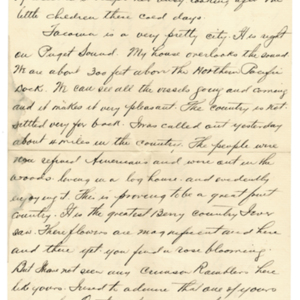 little children these cold days.
Tacoma is a very pretty city. It is right
on Puget Sound. My house overlooks the sound
We are about 300 feet above the Northern Pacific
Dock. We can see all the vessels going and coming
and it makes it very pleasant. The country is not
settled very far back. I was called out yesterday
about miles in the country. The people were
refined Americans and were out in the
woods living in a log house and evidently
enjoying it. This is proving to be a great fruit
country. It is the greatest Berry country I ever
saw. The flowers are magnificent and here
and there yet you find a rose blooming.
But I have not seen any Crimson Ramblers here
like yours. I used to admire that one of yours